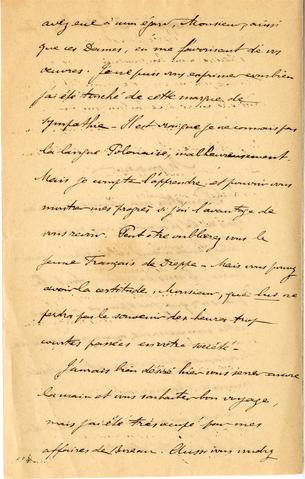 avez eue à mon égard, Monsieur, ainsi
que ces Dames, en me favorisant de vos
œuvres. Je ne puis vous exprimer combien
j'ai été touché de cette marque de
sympathie - Il est vrai que je ne connais pas
la langue Polonaise, malheureusement
Mais je compte l'apprendre et pouvoir vous
montrer mes progrès si j'ai l'avantage de
vous revoir. Peut être oublierez vous le
jeune Français de Dieppe - Mais vous pouvez
avoir la certitude, Monsieur, que lui ne
perdra pas le souvenir des heures trop
courtes passées en votre société -
J'aurais bien désiré hier vous serrer encore
la main et vous souhaiter bon voyage,
mais j'ai été très occupé par mes
affaires de Bureau. Aussi vous